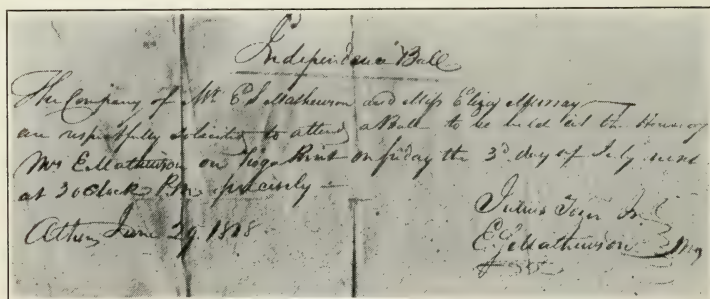 Independence Ball
The Company of Mr E S Mathewson and Miss Eliza Murray
are respectfully solicited to attend a Ball to be held at the House of
Mrs E Mathewson on Tioga Point on friday the 3d day of July next
at 3 oClock P.M. precisely
Athens June 29 1818
Julius Tozer Jr.
E. Mathewson Mg